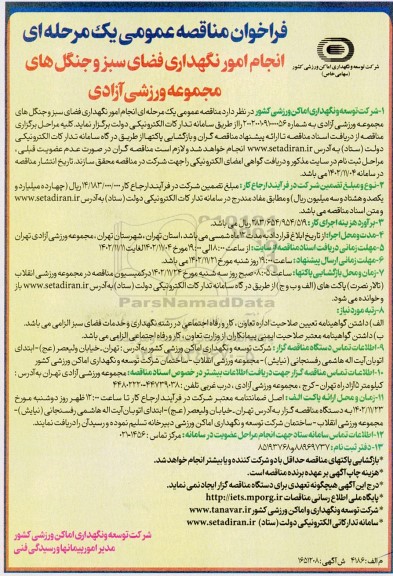 شرکت توسعه و نگهداری اماکن ورزشی کشور
(سهامی خاص)
فراخوان مناقصه عمومی یک مرحله ای
انجام امور نگهداری فضای سبز و جنگل های
مجموعه ورزشی آزادی
۱-شرکت توسعه و نگهداری اماکن ورزشی کشور در نظر دارد مناقصه عمومی یک مرحله ای انجام امور نگهداری فضای سبز و جنگل های
مجموعه ورزشی آزادی به شماره را از طریق سامانه تدارکات الکترونیکی دولت برگزار نماید. کلیه مراحل برگزاری
مناقصه از دریافت اسناد مناقصه تا ارائه پیشنهاد مناقصه گران و بازگشایی پاکتها از طریق درگاه سامانه تدارکات الکترونیکی
دولت (ستاد) به آدرس www.setadiran.ir انجام خواهد شد و لازم است مناقصه گران در صورت عدم عضویت قبلی،
مراحل ثبت نام در سایت مذکور و دریافت گواهی امضای الکترونیکی را جهت شرکت در مناقصه محقق سازند. تاریخ انتشار مناقصه
در سامانه ۱۴۰۲/۱۱/۰۴ می باشد.
۲-نوع و مبلغ تضمین شرکت در فرآیند ارجاع کار: مبلغ تضمین شرکت در فرآیند ارجاع کار ۱۴/۱۸۳/۰۰۰/۰۰۰ ریال (چهارده میلیارد و
یکصد و هشتاد و سه میلیون ریال) و مطابق مفاد مندرج در سامانه تدارکات الکترونیکی دولت (ستاد) به آدرس www.setadiran.ir
و متن اسناد مناقصه می باشد.
۳-برآورد هزینه اجرای کار: ریال می باشد.
۴-مدت و محل اجرا: از تاریخ ابلاغ قرارداد به مدت ماه شمسی می باشد، استان تهران، شهرستان تهران، مجموعه ورزشی آزادی تهران
۵-مهلت زمانی دریافت اسناد مناقصه از سایت: از ساعت مورخ لغایت
۶-مهلت زمانی ارسال پیشنهاد: ساعت ۱۹:۰۰ روز شنبه مورخ
۷-زمان و محل بازگشایی پاکتها: ساعت ۰۸:۰۵ صبح روز سه شنبه مورخ ۱۴۰۲/۱۱/۲۴ در کمیسیون مناقصه در مجموعه ورزشی انقلاب
(تالار نصرت) پاکت های (الف و ب و ج) از طریق درگاه سامانه تدارکات الکترونیکی دولت (ستاد) به آدرس www.setadiran.ir باز
و خوانده می شود.
۸-رتبه مورد نیاز:
الف) داشتن گواهینامه تعیین صلاحیت اداره تعاون، کار و رفاه اجتماعی در رشته نگهداری و خدمات فضای سبز الزامی می باشد.
ب) داشتن گواهینامه معتبر صلاحیت ایمنی پیمانکاران از وزارت تعاون، کار و رفاه اجتماعی الزامی می باشد.
۹-اطلاعات تماس دستگاه مناقصه گزار: شرکت توسعه و نگهداری اماکن ورزشی کشور به آدرس: تهران، خیابان ولیعصر (عج) - ابتدای
اتوبان آیت اله هاشمی رفسنجانی (نیایش) - مجموعه ورزشی انقلاب - ساختمان شرکت توسعه و نگهداری اماکن ورزشی کشور
۱۰-اطلاعات تماس مناقصه گزار جهت دریافت اطلاعات بیشتر در خصوص اسناد مناقصه: مجموعه ورزشی آزادی تهران به آدرس:
کیلومتر آزاد راه تهران - کرج، مجموعه ورزشی آزادی، درب غربی تلفن:
۱۱-زمان و محل ارائه پاکت الف: اصل ضمانتنامه معتبر شرکت در فرآیند ارجاع کار تا ساعت ظهر روز دوشنبه مورخ
۱۴۰۲/۱۱/۲۳ به دستگاه مناقصه گزار به آدرس تهران، خیابان ولیعصر (عج) - ابتدای اتوبان آیت اله هاشمی رفسنجانی (نیایش) -
مجموعه ورزشی انقلاب - ساختمان شرکت توسعه و نگهداری اماکن ورزشی دبیرخانه تسلیم نموده و رسید آن را دریافت نمایند.
۱۲-اطلاعات تماس سامانه ستاد جهت انجام مراحل عضویت در سامانه: مرکز تماس: ۰۲۱-۱۴۵۶
۱۳-دفتر ثبت نام: ۸۸۹۶۹۷۳۷ و ۸۵۱۹۳۷۶۸
*بازگشایی پاکتهای مناقصه حداقل با دو شرکت کننده و یا بیشتر انجام خواهد شد.
*هزینه چاپ آگهی بر عهده برنده مناقصه است.
*درج این آگهی هیچگونه تعهدی برای دستگاه مناقصه گزار ایجاد نمی نماید.
*پایگاه ملی اطلاع رسانی مناقصات http://iets.mporg.ir
*شرکت توسعه و نگهداری و اماکن ورزشی کشور www.tanavar.ir
*سامانه تدارکاتی الکترونیکی دولت (ستاد) www.setadiran.ir
شرکت توسعه و نگهداری اماکن ورزشی کشور
مدیر امور پیمانها و رسیدگی فنی
م الف: ۴۱۸۶ ش آگهی: ۱۶۵۱۲۰۸
ParsNamadData